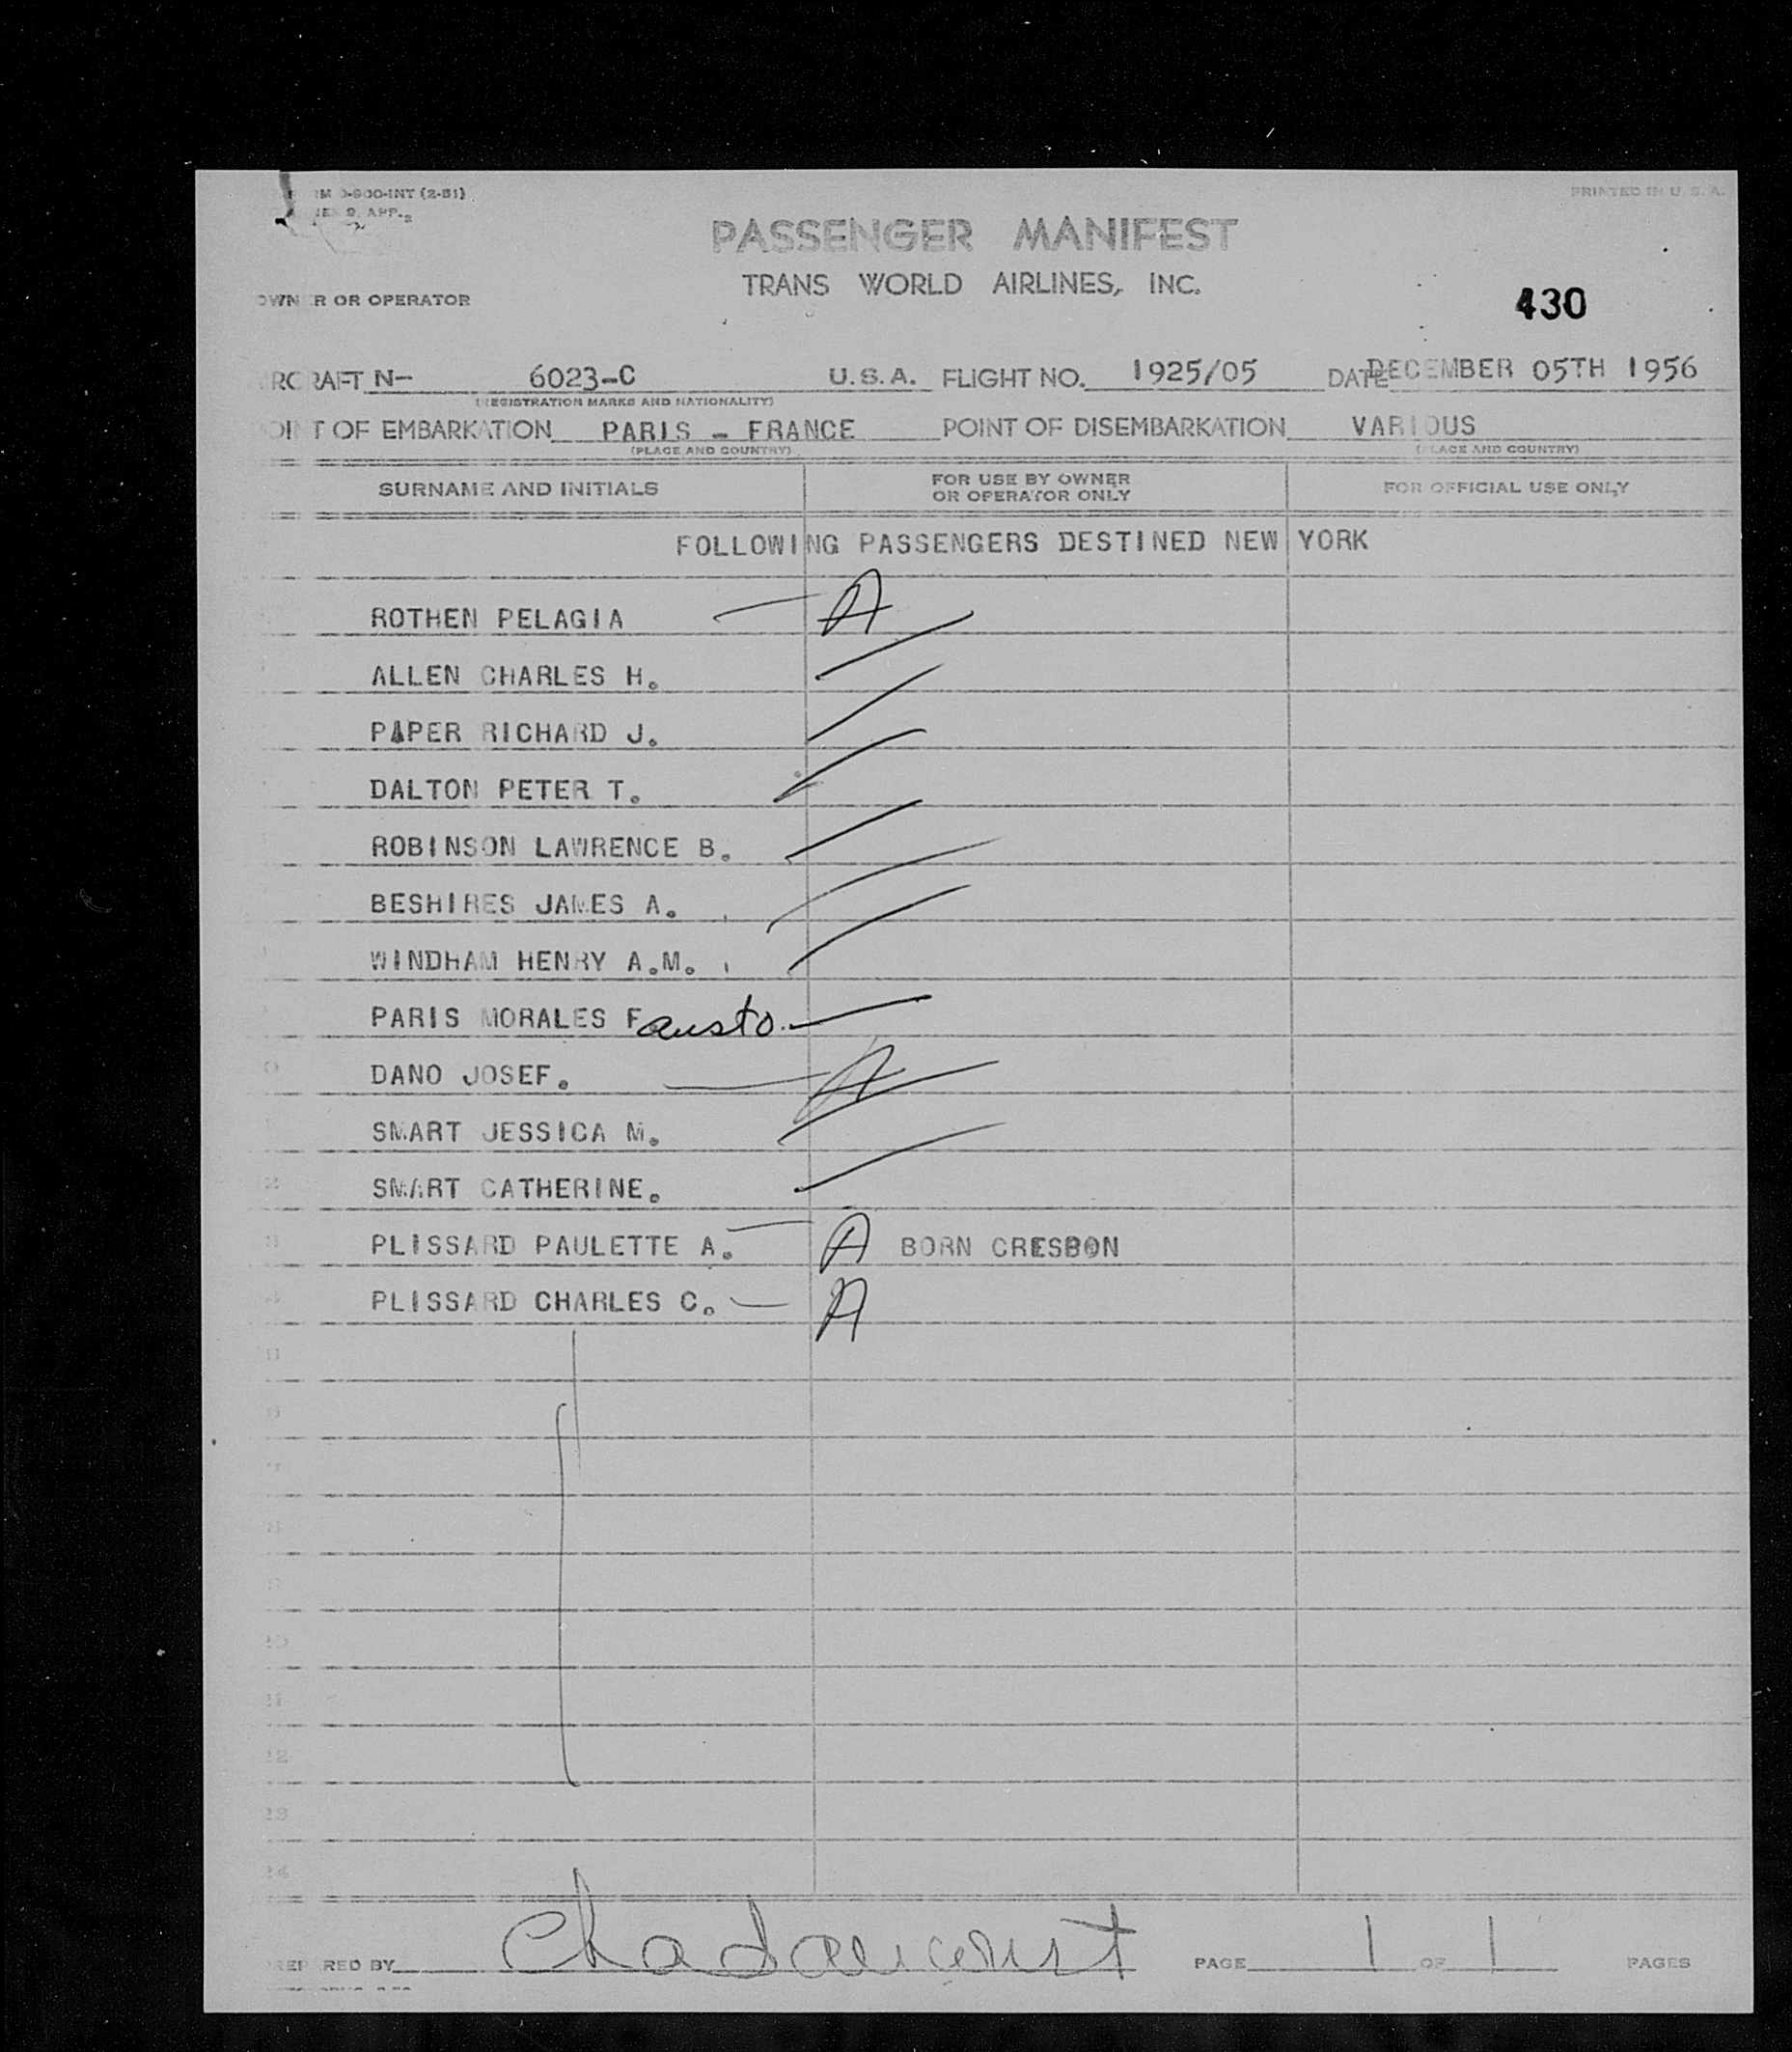 PRINTED IN U. S. A.
-900-INT (2-51)
APP.
PASSENGER MANIFEST
TRANS WORLD AIRLINES, INC.
OWNER OR OPERATOR
430
AIRCRAFT N- 6023-C U.S.A. FLIGHT NO. 1925/05 DATE DECEMBER 05TH 1956
(REGISTRATION MARKS AND NATIONALITY)
POINT OF EMBARKATION PARIS - FRANCE POINT OF DISEMBARKATION VARIOUS
(PLACE AND COUNTRY) (PLACE AND COUNTRY)
SURNAME AND INITIALS FOR USE BY OWNER OR OPERATOR ONLY FOR OFFICIAL USE ONLY
FOLLOWING PASSENGERS DESTINED NEW YORK
ROTHEN PELAGIA A
ALLEN CHARLES H.
PAPER RICHARD J.
DALTON PETER T.
ROBINSON LAWRENCE B.
BESHIRES JAMES A.
WINDHAM HENRY A.M.
PARIS MORALES Fausto
DANO JOSEF. A
SMART JESSICA M.
SMART CATHERINE.
PLISSARD PAULETTE A. A BORN CRESBON
PLISSARD CHARLES C. A
PREPARED BY PAGE 1 OF 1 PAGES